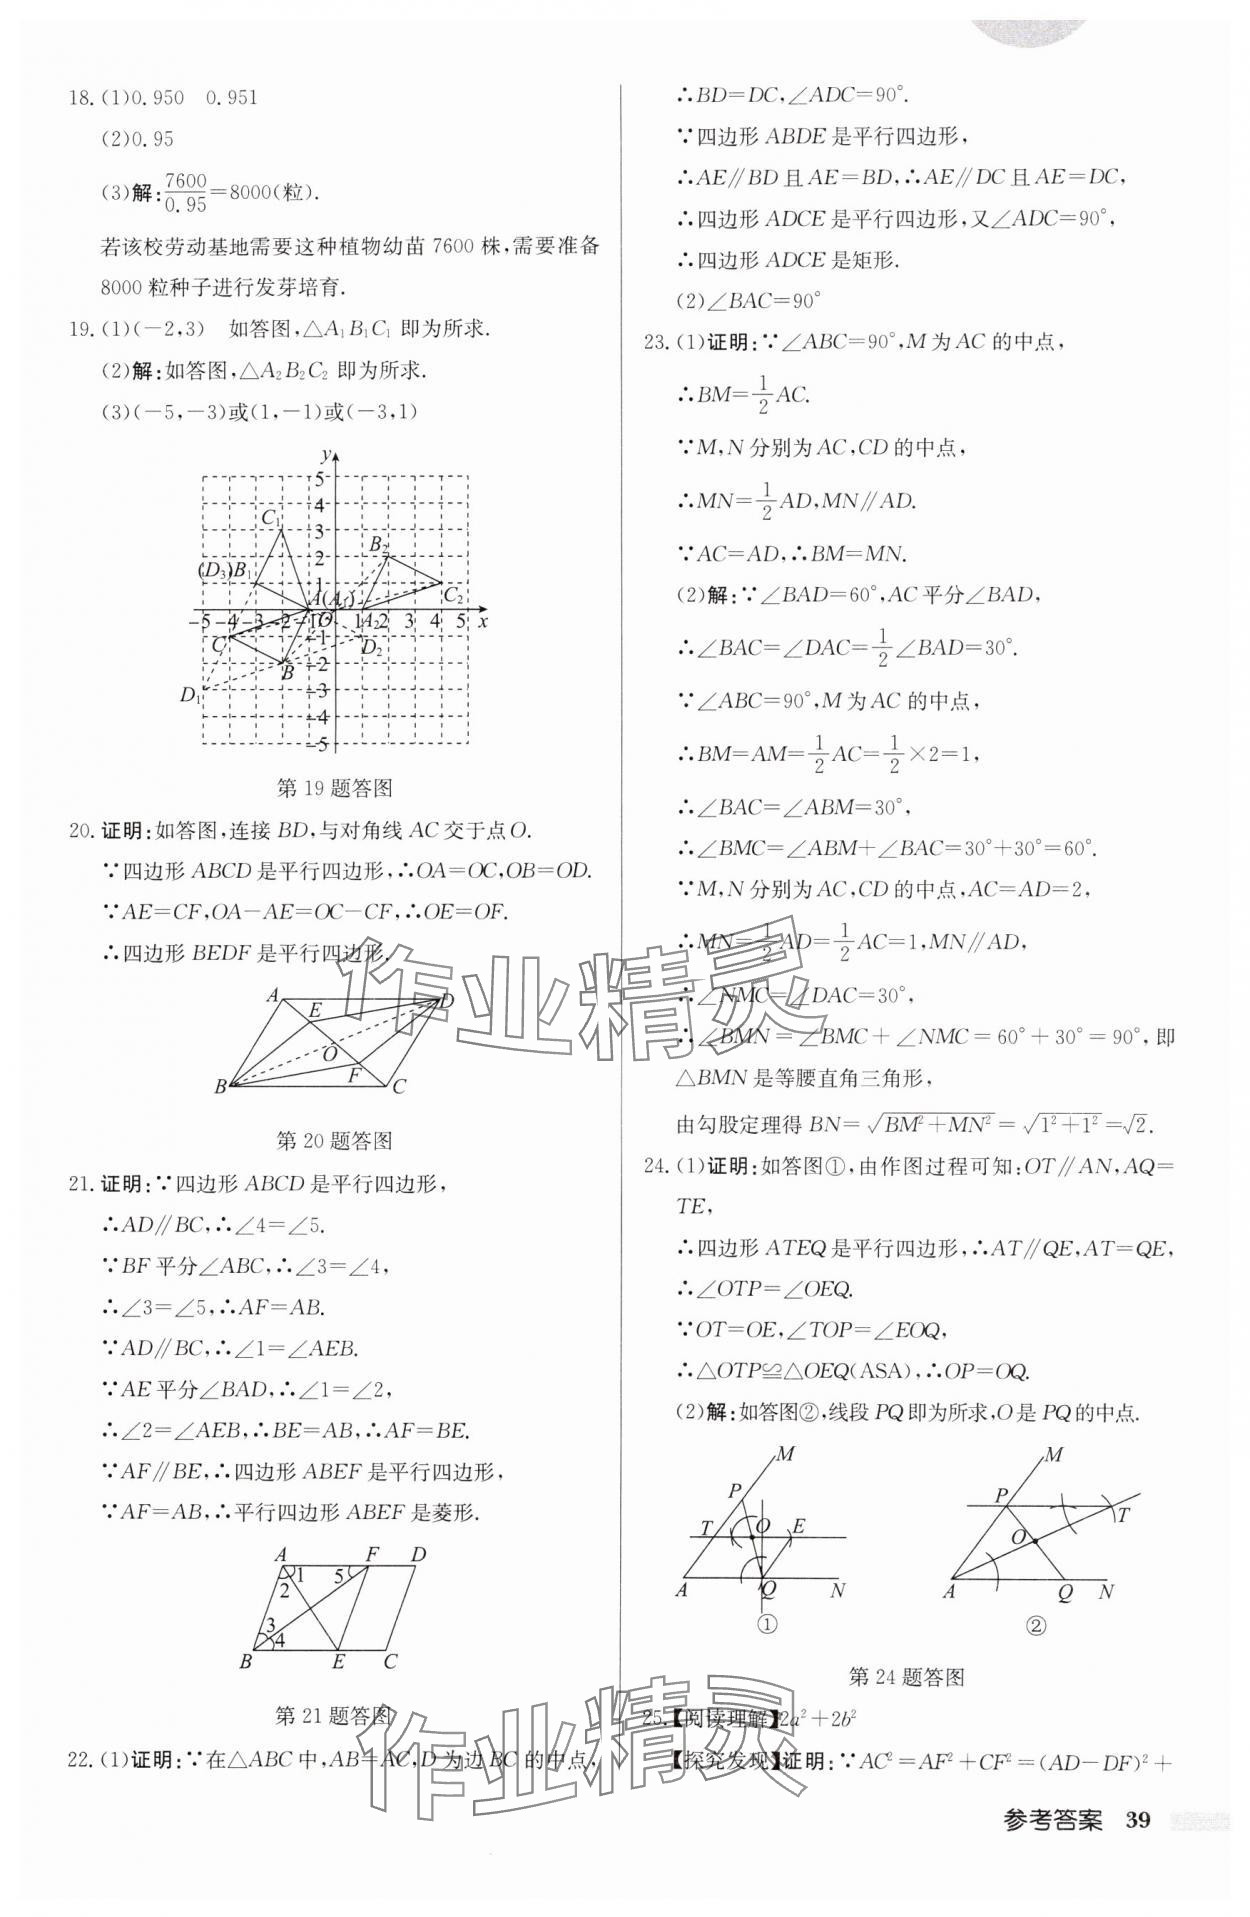 18. (1)0.950　0.951
(2)0.95
(3)解:7600/0.95=8000(粒).
若该校劳动基地需要这种植物幼苗 7600 株,需要准备
8000 粒种子进行发芽培育.
19. (1)(−2,3)　如答图,△A₁B₁C₁ 即为所求.
(2)解:如答图,△A₂B₂C₂ 即为所求.
(3)(−5,−3)或(1,−1)或(−3,1)
y
5
4
C₁ 3
B₂ 2
(D₃)B₁ 1
A(A₁) C₂
−5 −4 −3 −2 −1 O 1 A₂ 2 3 4 5 x
C −1 D₂
B −2
D₁ −3
−4
−5
第 19 题答图
20. 证明:如答图,连接 BD,与对角线 AC 交于点O.
∵四边形 ABCD 是平行四边形,∴OA=OC,OB=OD.
∵AE=CF,OA−AE=OC−CF,∴OE=OF.
∴四边形 BEDF 是平行四边形.
A E D
O
B F C
第 20 题答图
21. 证明:∵四边形 ABCD 是平行四边形,
∴AD∥BC,∴∠4=∠5.
∵BF 平分∠ABC,∴∠3=∠4,
∴∠3=∠5,∴AF=AB.
∵AD∥BC,∴∠1=∠AEB.
∵AE 平分∠BAD,∴∠1=∠2,
∴∠2=∠AEB,∴BE=AB,∴AF=BE.
∵AF∥BE,∴四边形 ABEF 是平行四边形,
∵AF=AB,∴平行四边形 ABEF 是菱形.
A F D
1 5
2
3
4
B E C
第 21 题答图
22. (1)证明:∵在△ABC 中,AB=AC,D 为边 BC 的中点,
∴BD=DC,∠ADC=90°.
∵四边形 ABDE 是平行四边形,
∴AE∥BD 且 AE=BD,∴AE∥DC 且 AE=DC,
∴四边形 ADCE 是平行四边形,又∠ADC=90°,
∴四边形 ADCE 是矩形.
(2)∠BAC=90°
23. (1)证明:∵∠ABC=90°,M 为 AC 的中点,
∴BM=1/2 AC.
∵M,N 分别为 AC,CD 的中点,
∴MN=1/2 AD,MN∥AD.
∵AC=AD,∴BM=MN.
(2)解:∵∠BAD=60°,AC 平分∠BAD,
∴∠BAC=∠DAC=1/2∠BAD=30°.
∵∠ABC=90°,M 为 AC 的中点,
∴BM=AM=1/2 AC=1/2×2=1,
∴∠BAC=∠ABM=30°,
∴∠BMC=∠ABM+∠BAC=30°+30°=60°.
∵M,N 分别为 AC,CD 的中点,AC=AD=2,
∴MN=1/2 AD=1/2 AC=1,MN∥AD,
∴∠NMC=∠DAC=30°,
∴∠BMN=∠BMC+∠NMC=60°+30°=90°,即
△BMN 是等腰直角三角形,
由勾股定理得 BN=√(BM²+MN²)=√(1²+1²)=√2.
24. (1)证明:如答图①,由作图过程可知:OT∥AN,AQ=
TE,
∴四边形 ATEQ 是平行四边形,∴AT∥QE,AT=QE,
∴∠OTP=∠OEQ.
∵OT=OE,∠TOP=∠EOQ,
∴△OTP≌△OEQ(ASA),∴OP=OQ.
(2)解:如答图②,线段 PQ 即为所求,O 是 PQ 的中点.
M
P
T O E
A Q N
①
M
P T
O
A Q N
②
第 24 题答图
25.【阅读理解】2a²+2b²
【探究发现】证明:∵AC²=AF²+CF²=(AD−DF)²+
参考答案　39
作业精灵
作业精灵